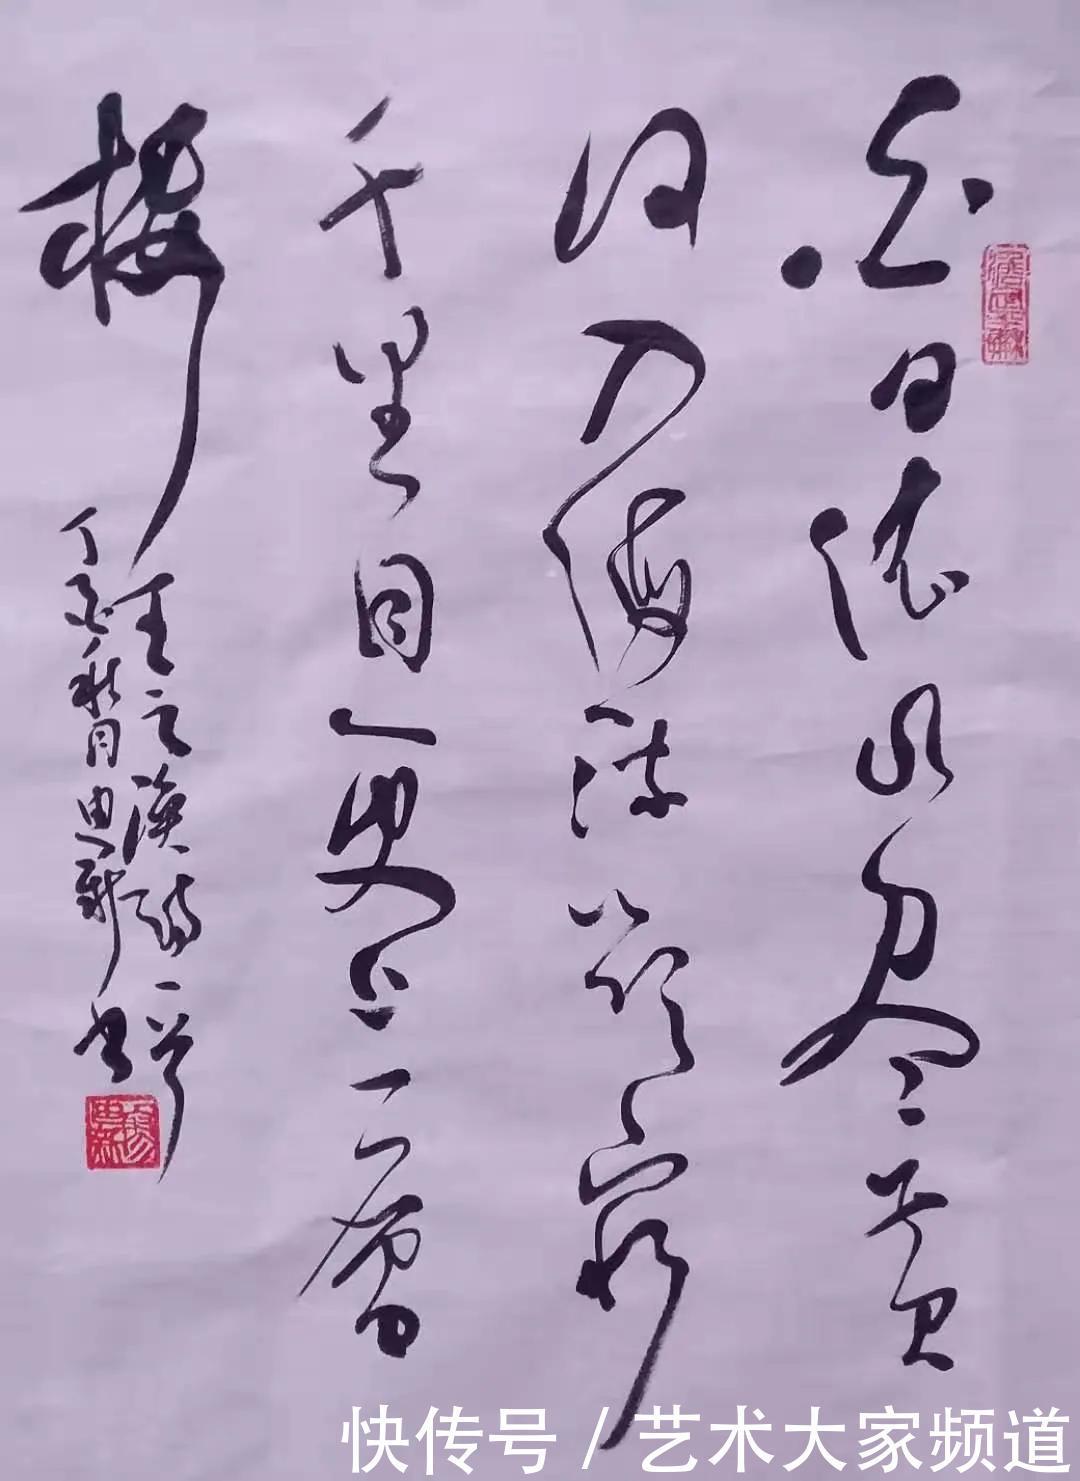 白日依山尽黄
河入海流欲穷
千里目更上一層
楼
王之涣诗一首
丁酉 月 书
快传号 / 艺术大家频道